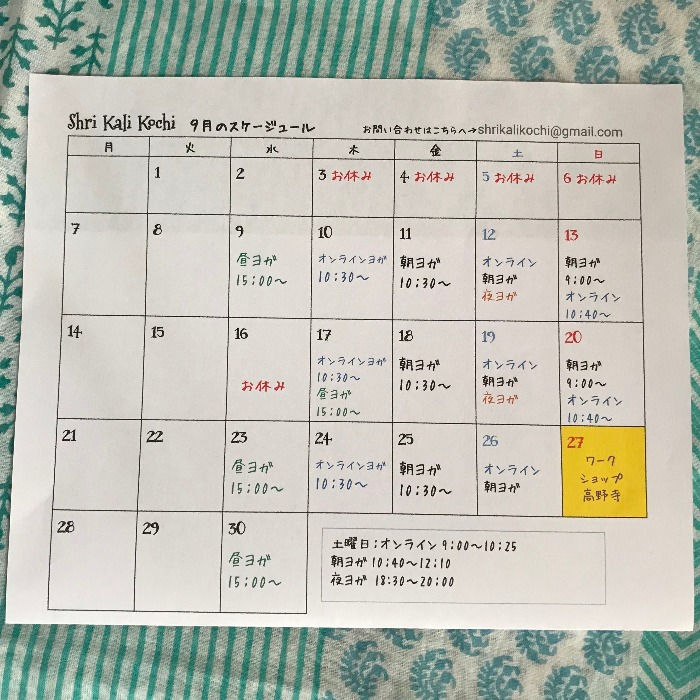 Shri Kali Kochi 9月のスケージュール お問い合わせはこちらへ→shrikalikochi@gmail.com
月 火 水 木 金 土 日
1 2 3 お休み 4 お休み 5 お休み 6 お休み
7 8 9 10 11 12 13
昼ヨガ オンラインヨガ 朝ヨガ オンライン 朝ヨガ
15:00〜 10:30〜 10:30〜 朝ヨガ 9:00〜
夜ヨガ オンライン
10:40〜
14 15 16 17 18 19 20
お休み オンラインヨガ 朝ヨガ オンライン 朝ヨガ
10:30〜 10:30〜 朝ヨガ 9:00〜
昼ヨガ 夜ヨガ オンライン
15:00〜 10:40〜
21 22 23 24 25 26 27
昼ヨガ オンラインヨガ 朝ヨガ オンライン ワーク
15:00〜 10:30〜 10:30〜 朝ヨガ ショップ
高野寺
28 29 30
昼ヨガ
15:00〜
土曜日:オンライン 9:00〜10:25
朝ヨガ 10:40〜12:10
夜ヨガ 18:30〜20:00